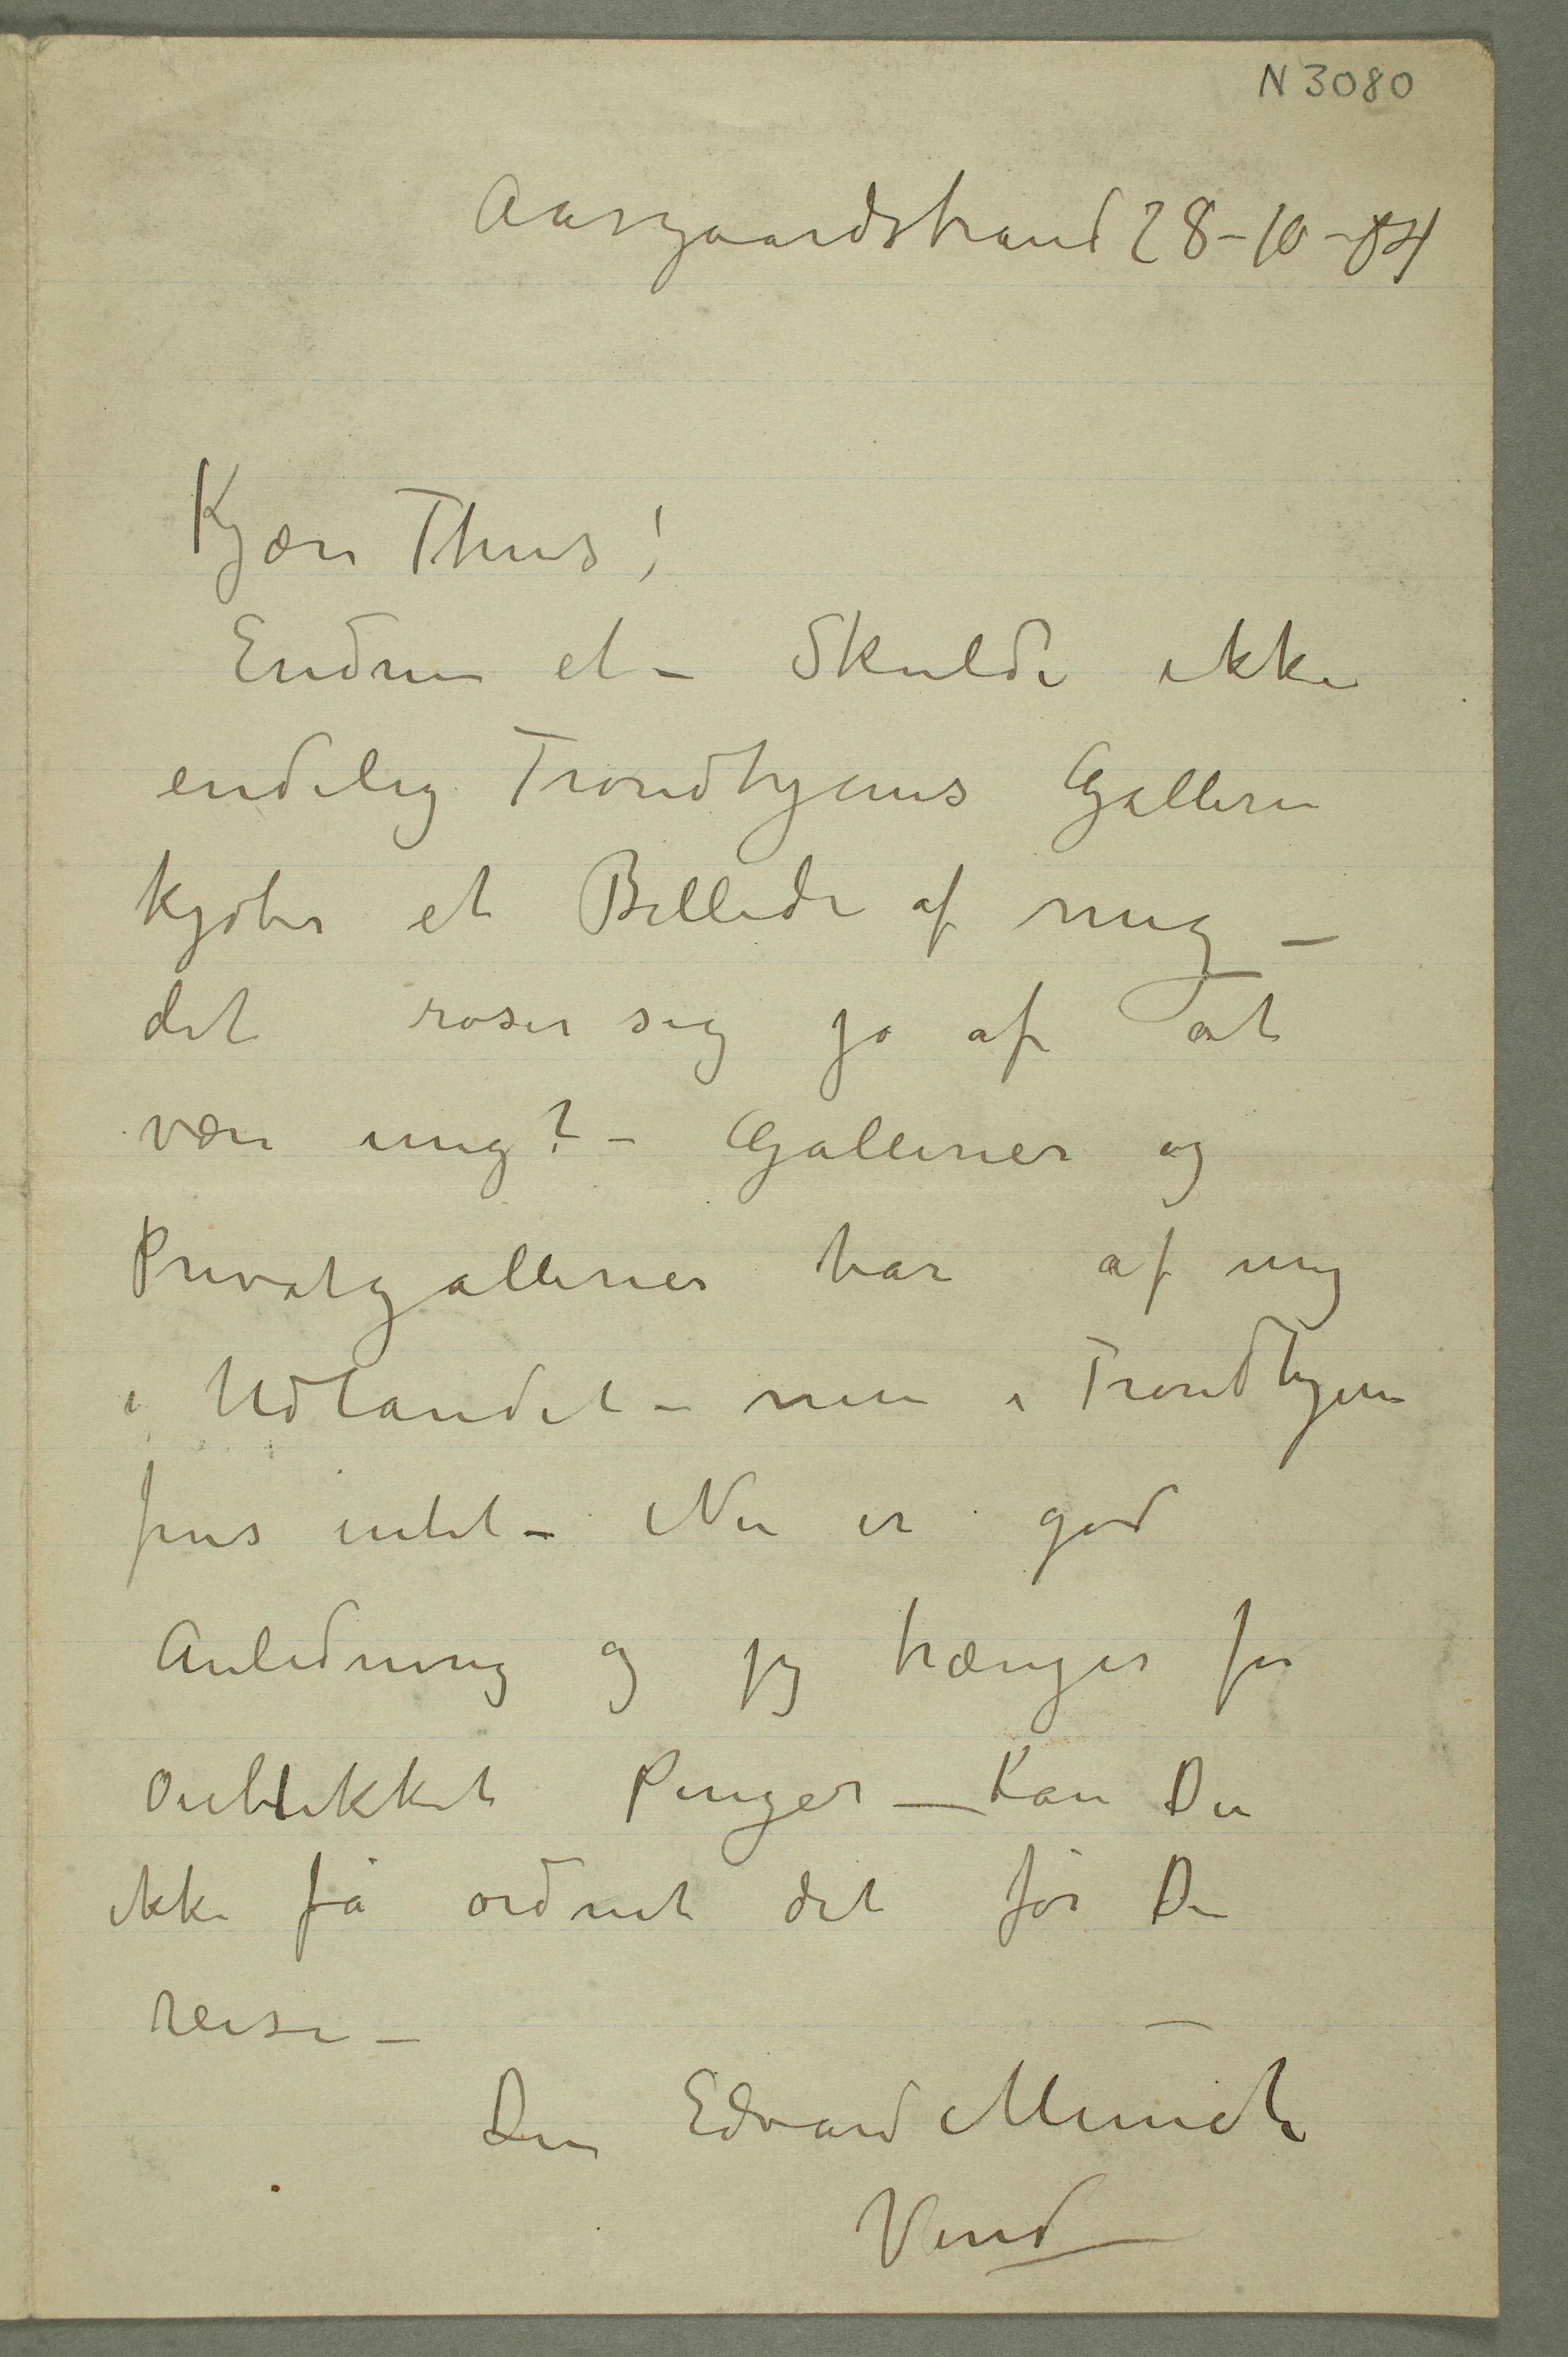 N 3080
Aasgaardstrand 28-10-04
Kjære Thiis!
Endnu et – Skulde ikke
endelig Trondhjems Galleri
kjøbe et Billede af mig –
det roser sig jo af at
være ung? – Gallerier og
Privatgallerier har af mig
i Udlandet – men i Trondhjem
fins intet – Nu er god
Anledning og jeg trænger for
Øieblikket Penger – Kan Du
ikke få ordnet det før Du
reiser –
Din Edvard Munch
Vend